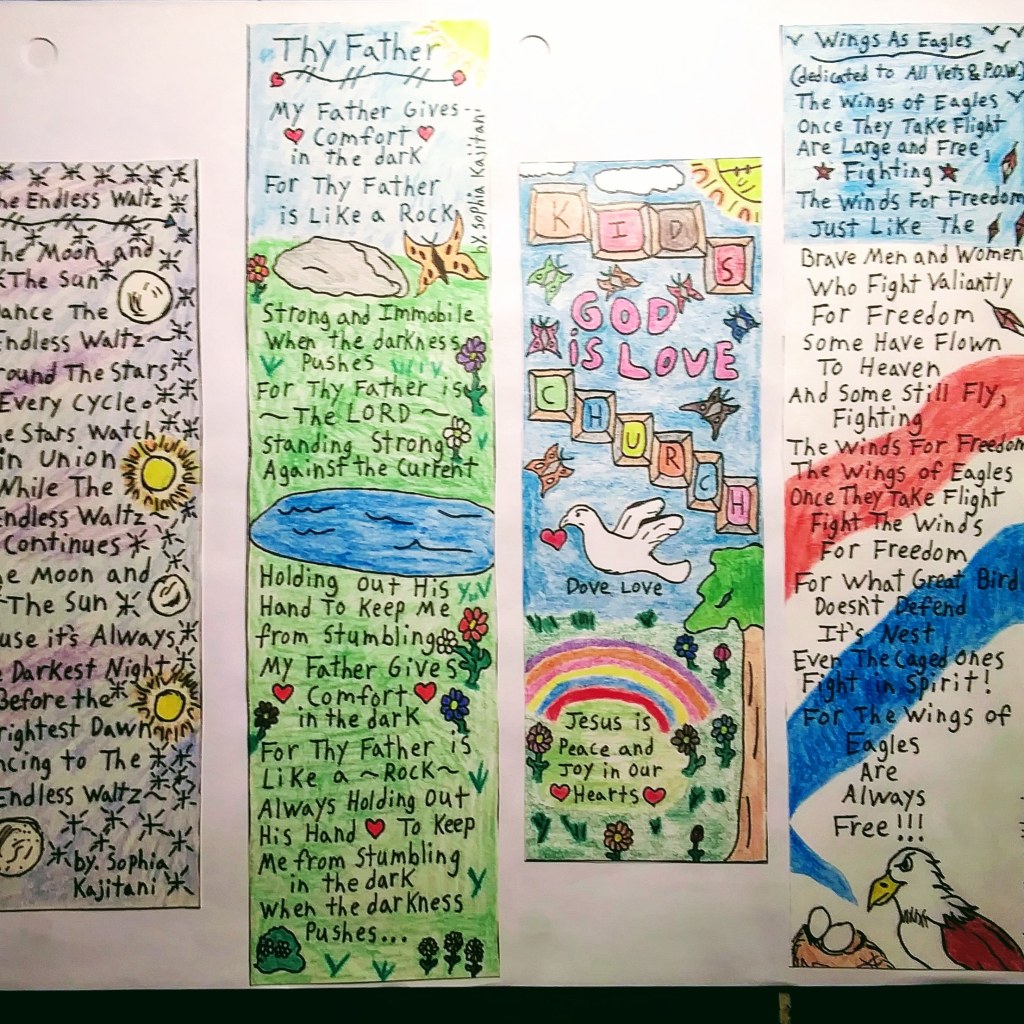 he Endless Waltz
he Moon and
The Sun
ance The
Endless Waltz~
round The Stars
Every Cycle.
he Stars Watch
in union
While The
Endless Waltz~
Continues
e Moon and
The Sun
use it's Always
e Darkest Night
Before the
rightest Dawn
ncing to The
Endless Waltz~
by. Sophia
Kajitani
Thy Father
My Father Gives--
Comfort
in the dark
For Thy Father
is Like a Rock
by. Sophia Kajitani
Strong and Immobile
When the darkness
Pushes
For Thy Father is
~The LORD~
standing Strong
Against the Current
Holding out His
Hand To Keep Me
from Stumbling
My Father Gives
Comfort
in the dark
For Thy Father is
Like a ~Rock~
Always Holding Out
His Hand To Keep
Me from Stumbling
in the dark
when the darkness
Pushes...
KIDS
GOD
iS LOVE
CHURCH
Dove Love
Jesus is
Peace and
Joy in Our
Hearts
Wings As Eagles
(dedicated to All Vets & P.O.W.)
The Wings of Eagles
Once They Take Flight
Are Large and Free,
Fighting
The Winds For Freedom
Just Like The
Brave Men and Women
Who Fight Valiantly
For Freedom
Some Have Flown
To Heaven
And Some Still Fly,
Fighting
The Winds For Freedom
The Wings of Eagles
Once They Take Flight
Fight The Winds
For Freedom
For What Great Bird
Doesn't Defend
It's Nest
Even The Caged Ones
Fight in Spirit!
For The Wings of
Eagles
Are
Always
Free!!!